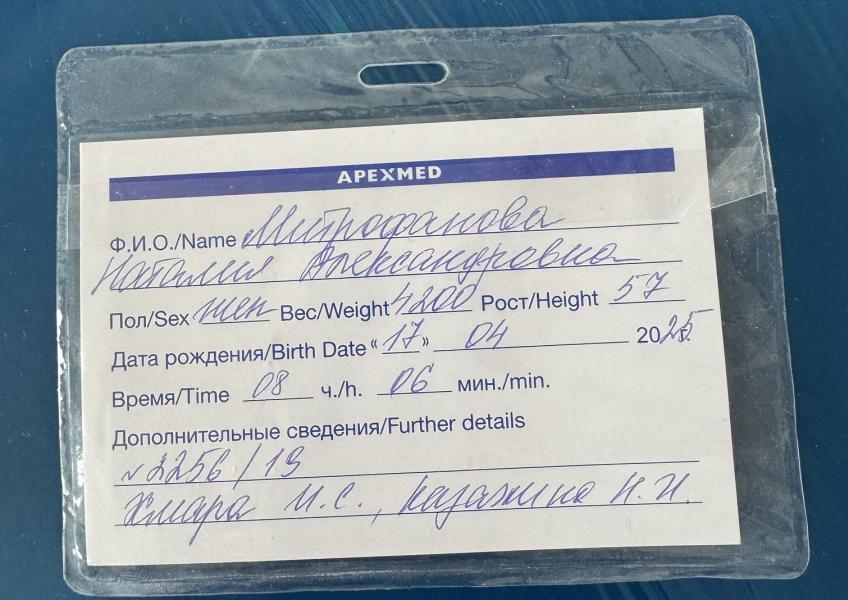 APEXMED
Ф.И.О./Name Митрофанова
Наталия Александровна
Пол/Sex жен Вес/Weight 4200 Рост/Height 57
Дата рождения/Birth Date “17” 04 2025
Время/Time 08 ч./h. 06 мин./min.
Дополнительные сведения/Further details
№2256/19
Хмара И.С., Н.И.